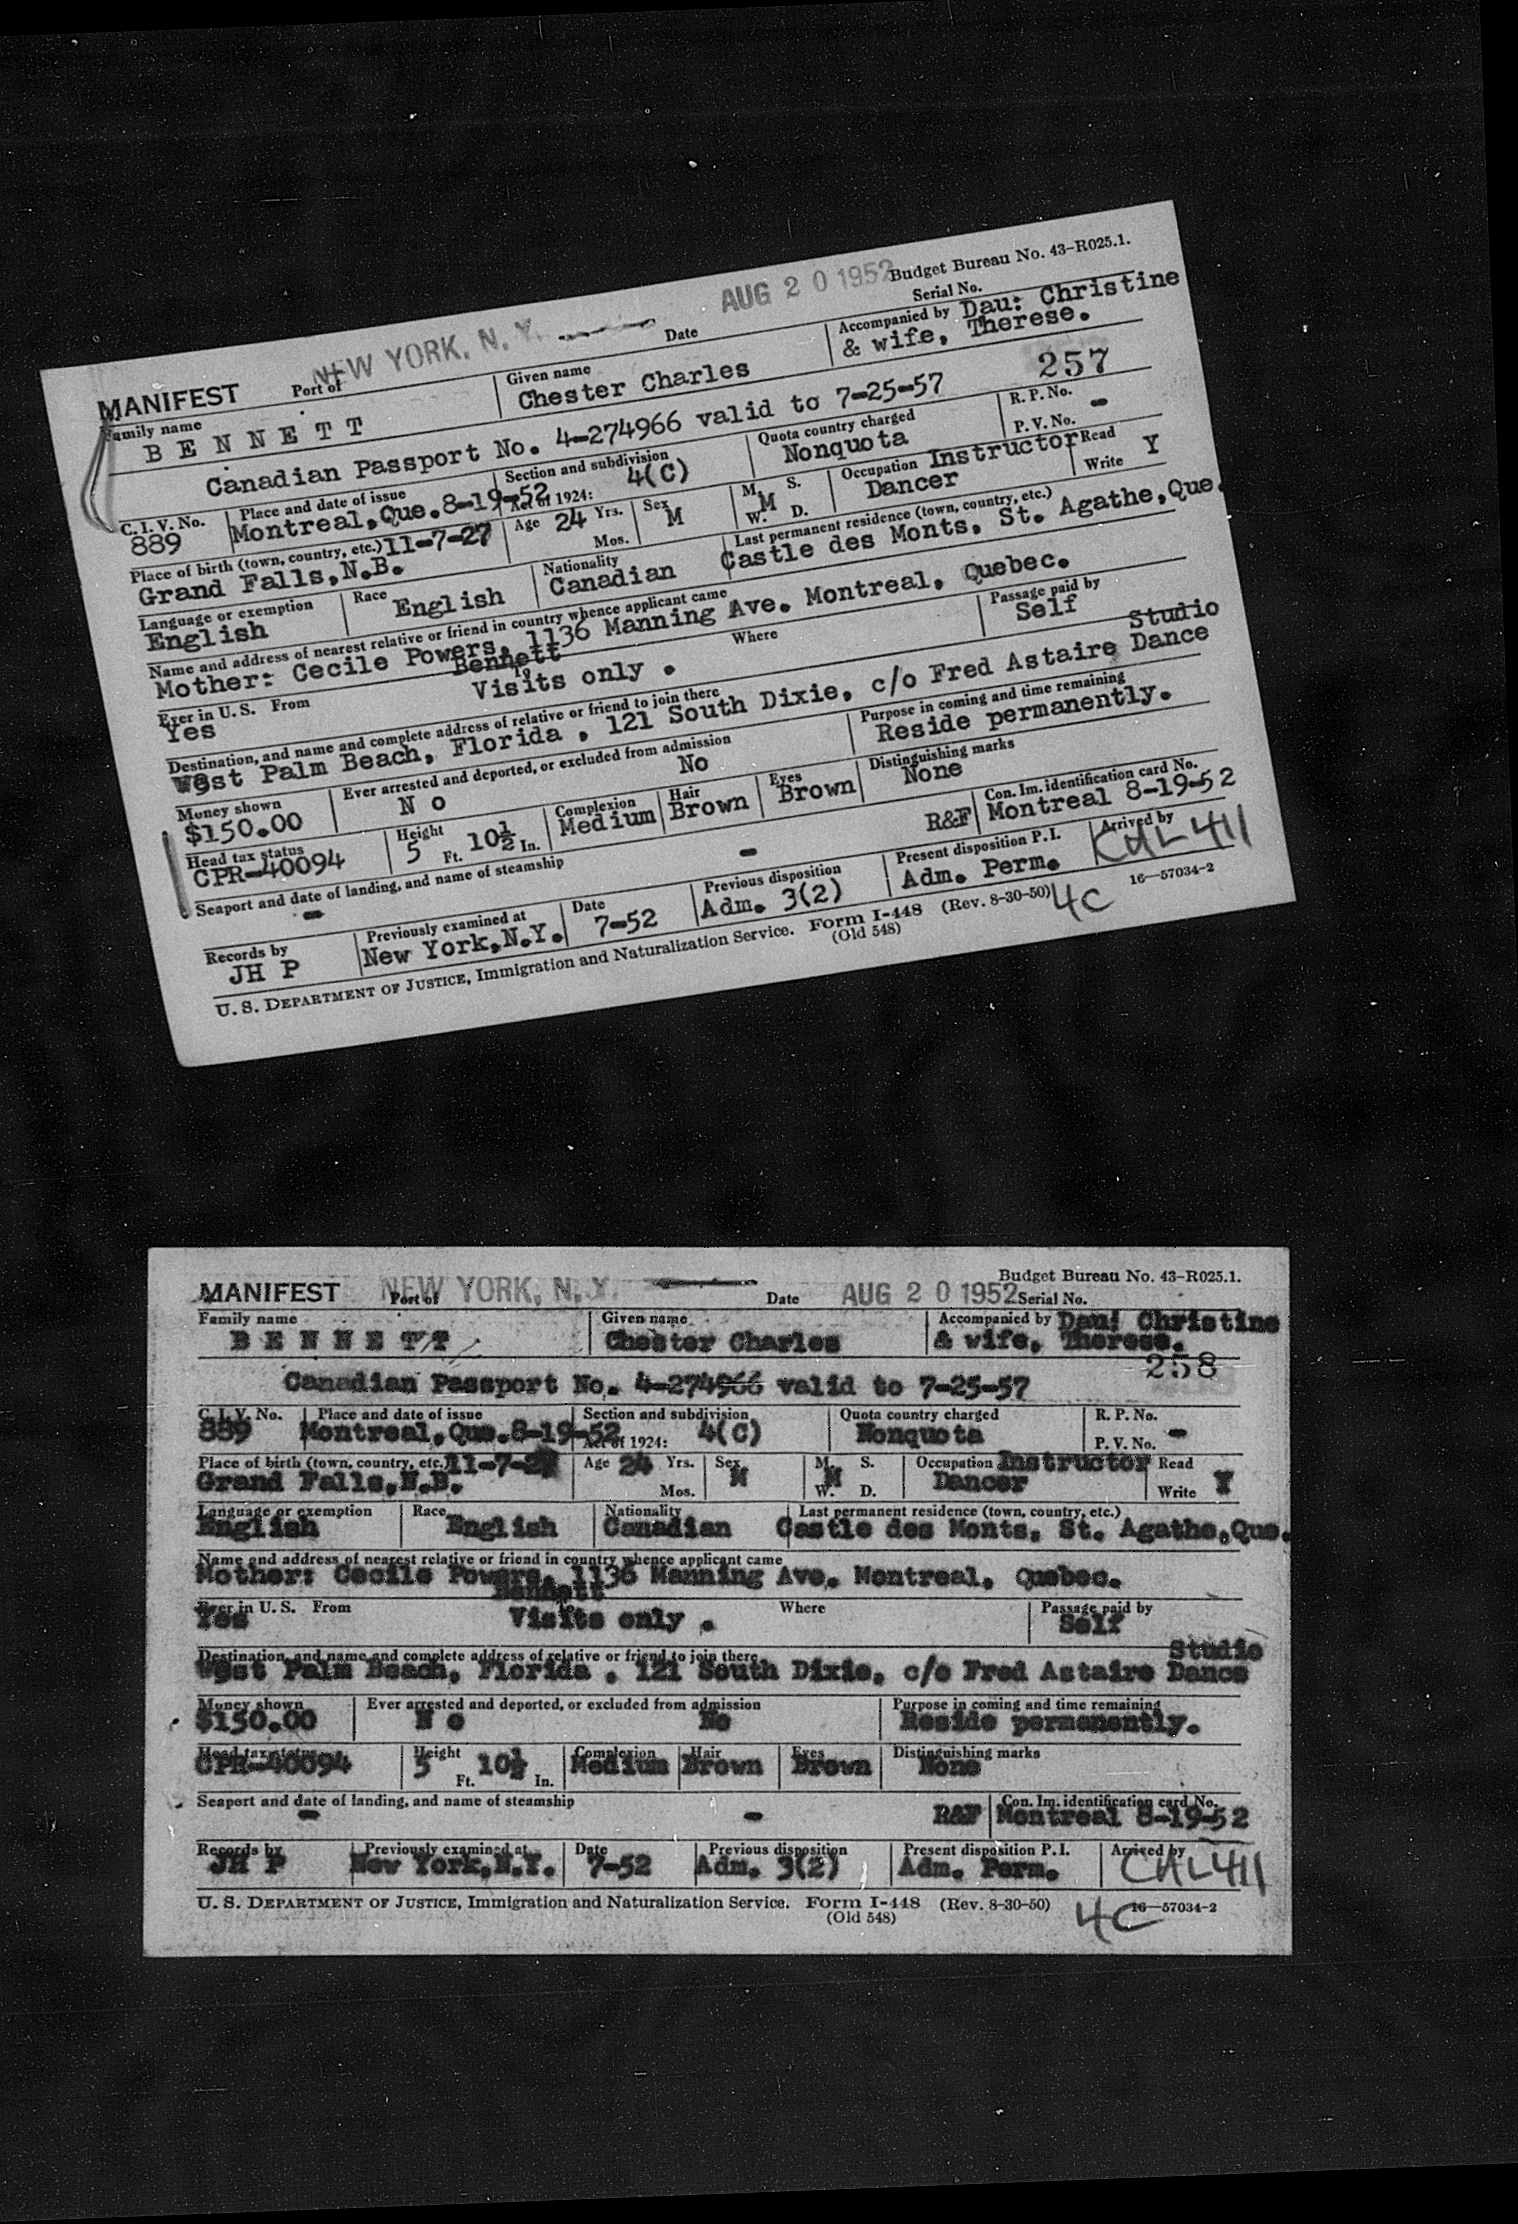 Budget Bureau No. 43-R025.1.
MANIFEST Port of NEW YORK, N. Y. Date AUG 20 1952 Serial No.
Family name Given name Accompanied by Dau: Christine
B E N N E T T Chester Charles & wife, Therese.
257
Canadian Passport No. 4-274966 valid to 7-25-57
C. I. V. No. Place and date of issue Section and subdivision Quota country charged R. P. No.
889 Montreal,Que.8-19-52 Act of 1924: 4(C) Nonquota P. V. No. -
Place of birth (town, country, etc.) 11-7-27 Age 24 Yrs. Sex M. S. Occupation Instructor Read
Grand Falls,N.B. Mos. M M W. D. Dancer Write Y
Language or exemption Race Nationality Last permanent residence (town, country, etc.)
English English Canadian Castle des Monts, St. Agathe,Que.
Name and address of nearest relative or friend in country whence applicant came
Mother: Cecile Powers, 1136 Manning Ave. Montreal, Quebec.
Bennett
Ever in U. S. From To Where Passage paid by
Yes Visits only . Self
Studio
Destination, and name and complete address of relative or friend to join there
West Palm Beach, Florida , 121 South Dixie, c/o Fred Astaire Dance
Money shown Ever arrested and deported, or excluded from admission Purpose in coming and time remaining
$150.00 N o No Reside permanently.
Head tax status Height Complexion Hair Eyes Distinguishing marks
CPR-40094 5 Ft. 10½ In. Medium Brown Brown None
Seaport and date of landing, and name of steamship Con. Im. identification card No.
- - R&F Montreal 8-19-52
Records by Previously examined at Date Previous disposition Present disposition P. I. Arrived by
JH P New York,N.Y. 7-52 Adm. 3(2) Adm. Perm. CAL 411
U. S. DEPARTMENT OF JUSTICE, Immigration and Naturalization Service. Form I-448 (Rev. 8-30-50) 4C 16—57034-2
(Old 548)
Budget Bureau No. 43-R025.1.
MANIFEST Port of NEW YORK, N. Y. Date AUG 20 1952 Serial No.
Family name Given name Accompanied by Dau: Christine
B E N N E T T Chester Charles & wife, Therese.
258
Canadian Passport No. 4-274966 valid to 7-25-57
C. I. V. No. Place and date of issue Section and subdivision Quota country charged R. P. No.
889 Montreal,Que.8-19-52 Act of 1924: 4(C) Nonquota P. V. No. -
Place of birth (town, country, etc.) 11-7-27 Age 24 Yrs. Sex M. S. Occupation Instructor Read
Grand Falls,N.B. Mos. M M W. D. Dancer Write Y
Language or exemption Race Nationality Last permanent residence (town, country, etc.)
English English Canadian Castle des Monts, St. Agathe,Que.
Name and address of nearest relative or friend in country whence applicant came
Mother: Cecile Powers, 1136 Manning Ave. Montreal, Quebec.
Bennett
Ever in U. S. From To Where Passage paid by
Yes Visits only . Self
Studio
Destination, and name and complete address of relative or friend to join there
West Palm Beach, Florida , 121 South Dixie, c/o Fred Astaire Dance
Money shown Ever arrested and deported, or excluded from admission Purpose in coming and time remaining
$150.00 N o No Reside permanently.
Head tax status Height Complexion Hair Eyes Distinguishing marks
CPR-40094 5 Ft. 10½ In. Medium Brown Brown None
Seaport and date of landing, and name of steamship Con. Im. identification card No.
- - R&F Montreal 8-19-52
Records by Previously examined at Date Previous disposition Present disposition P. I. Arrived by
JH P New York,N.Y. 7-52 Adm. 3(2) Adm. Perm. CAL 411
U. S. DEPARTMENT OF JUSTICE, Immigration and Naturalization Service. Form I-448 (Rev. 8-30-50) 4C 16—57034-2
(Old 548)